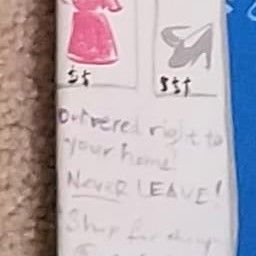 $$ $$$
Delivered right to
your home!
NEVER LEAVE!
Shop for